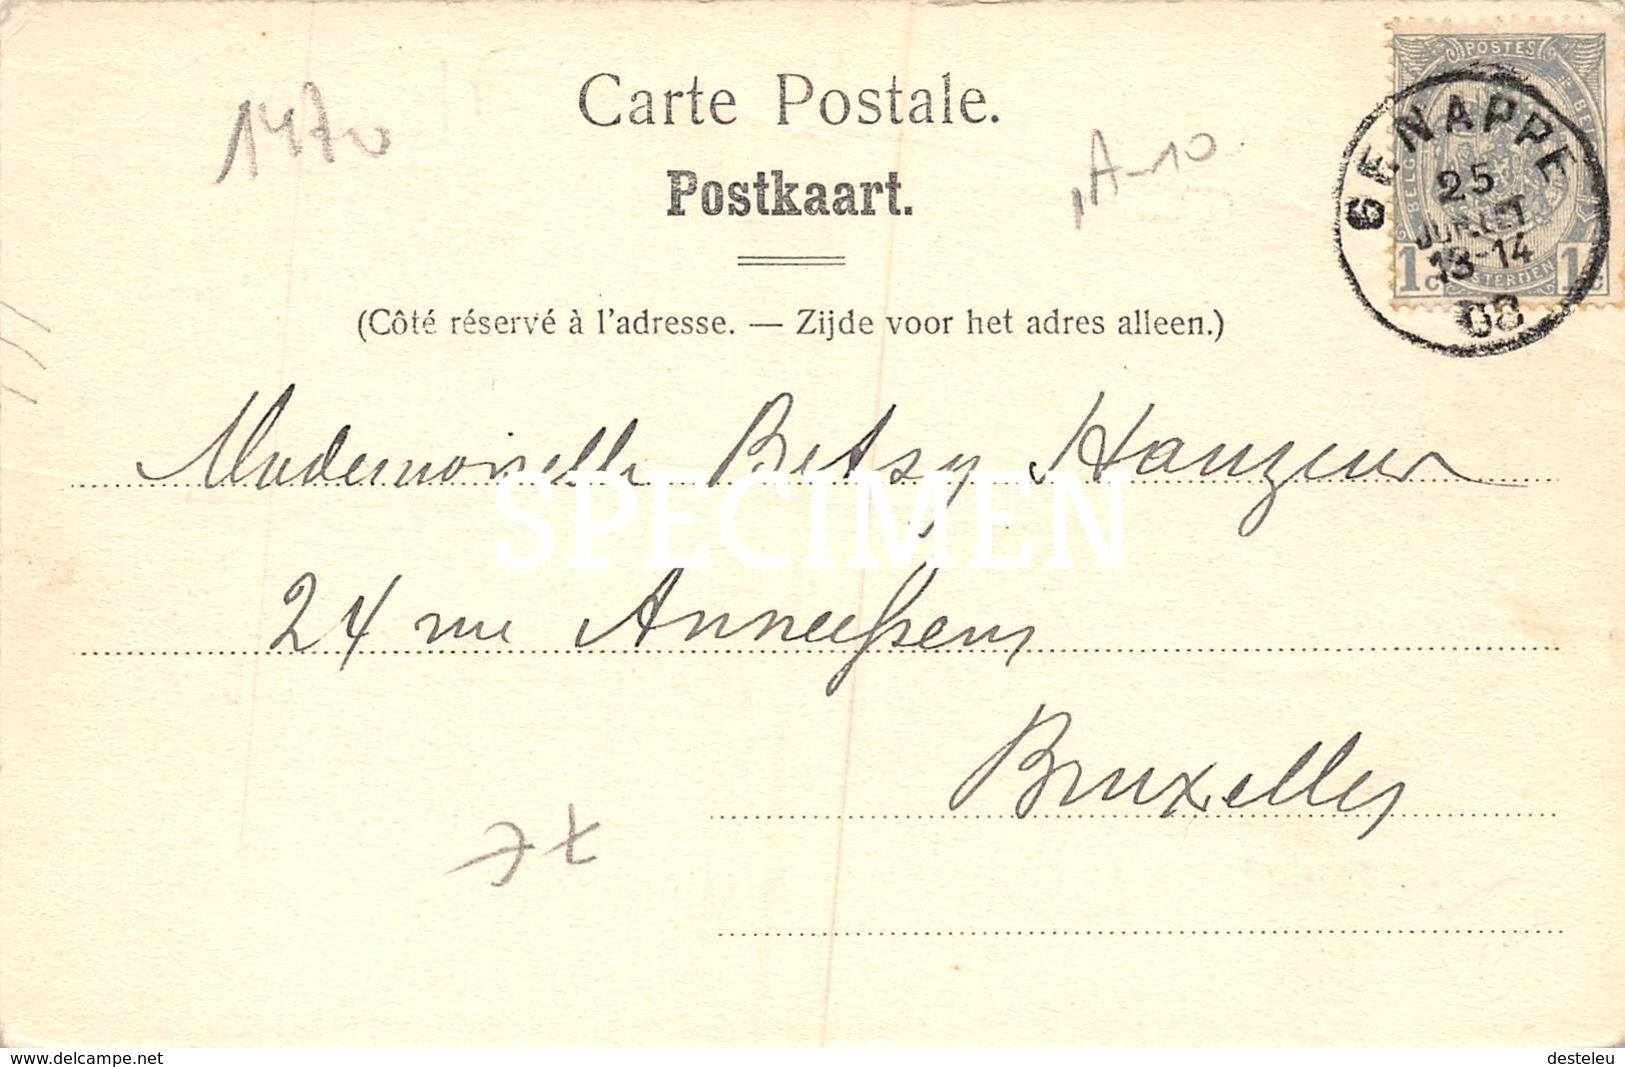 1470
Carte Postale.
A-10
Postkaart.
(Côté réservé à l'adresse. — Zijde voor het adres alleen.)
POSTES
1c 1c
GENAPPE
25
JUILLET
13-14
08
Mademoiselle Betsy Hanzeur
SPECIMEN
24 rue Anneessens
Bruxelles
www.delcampe.net
desteleu